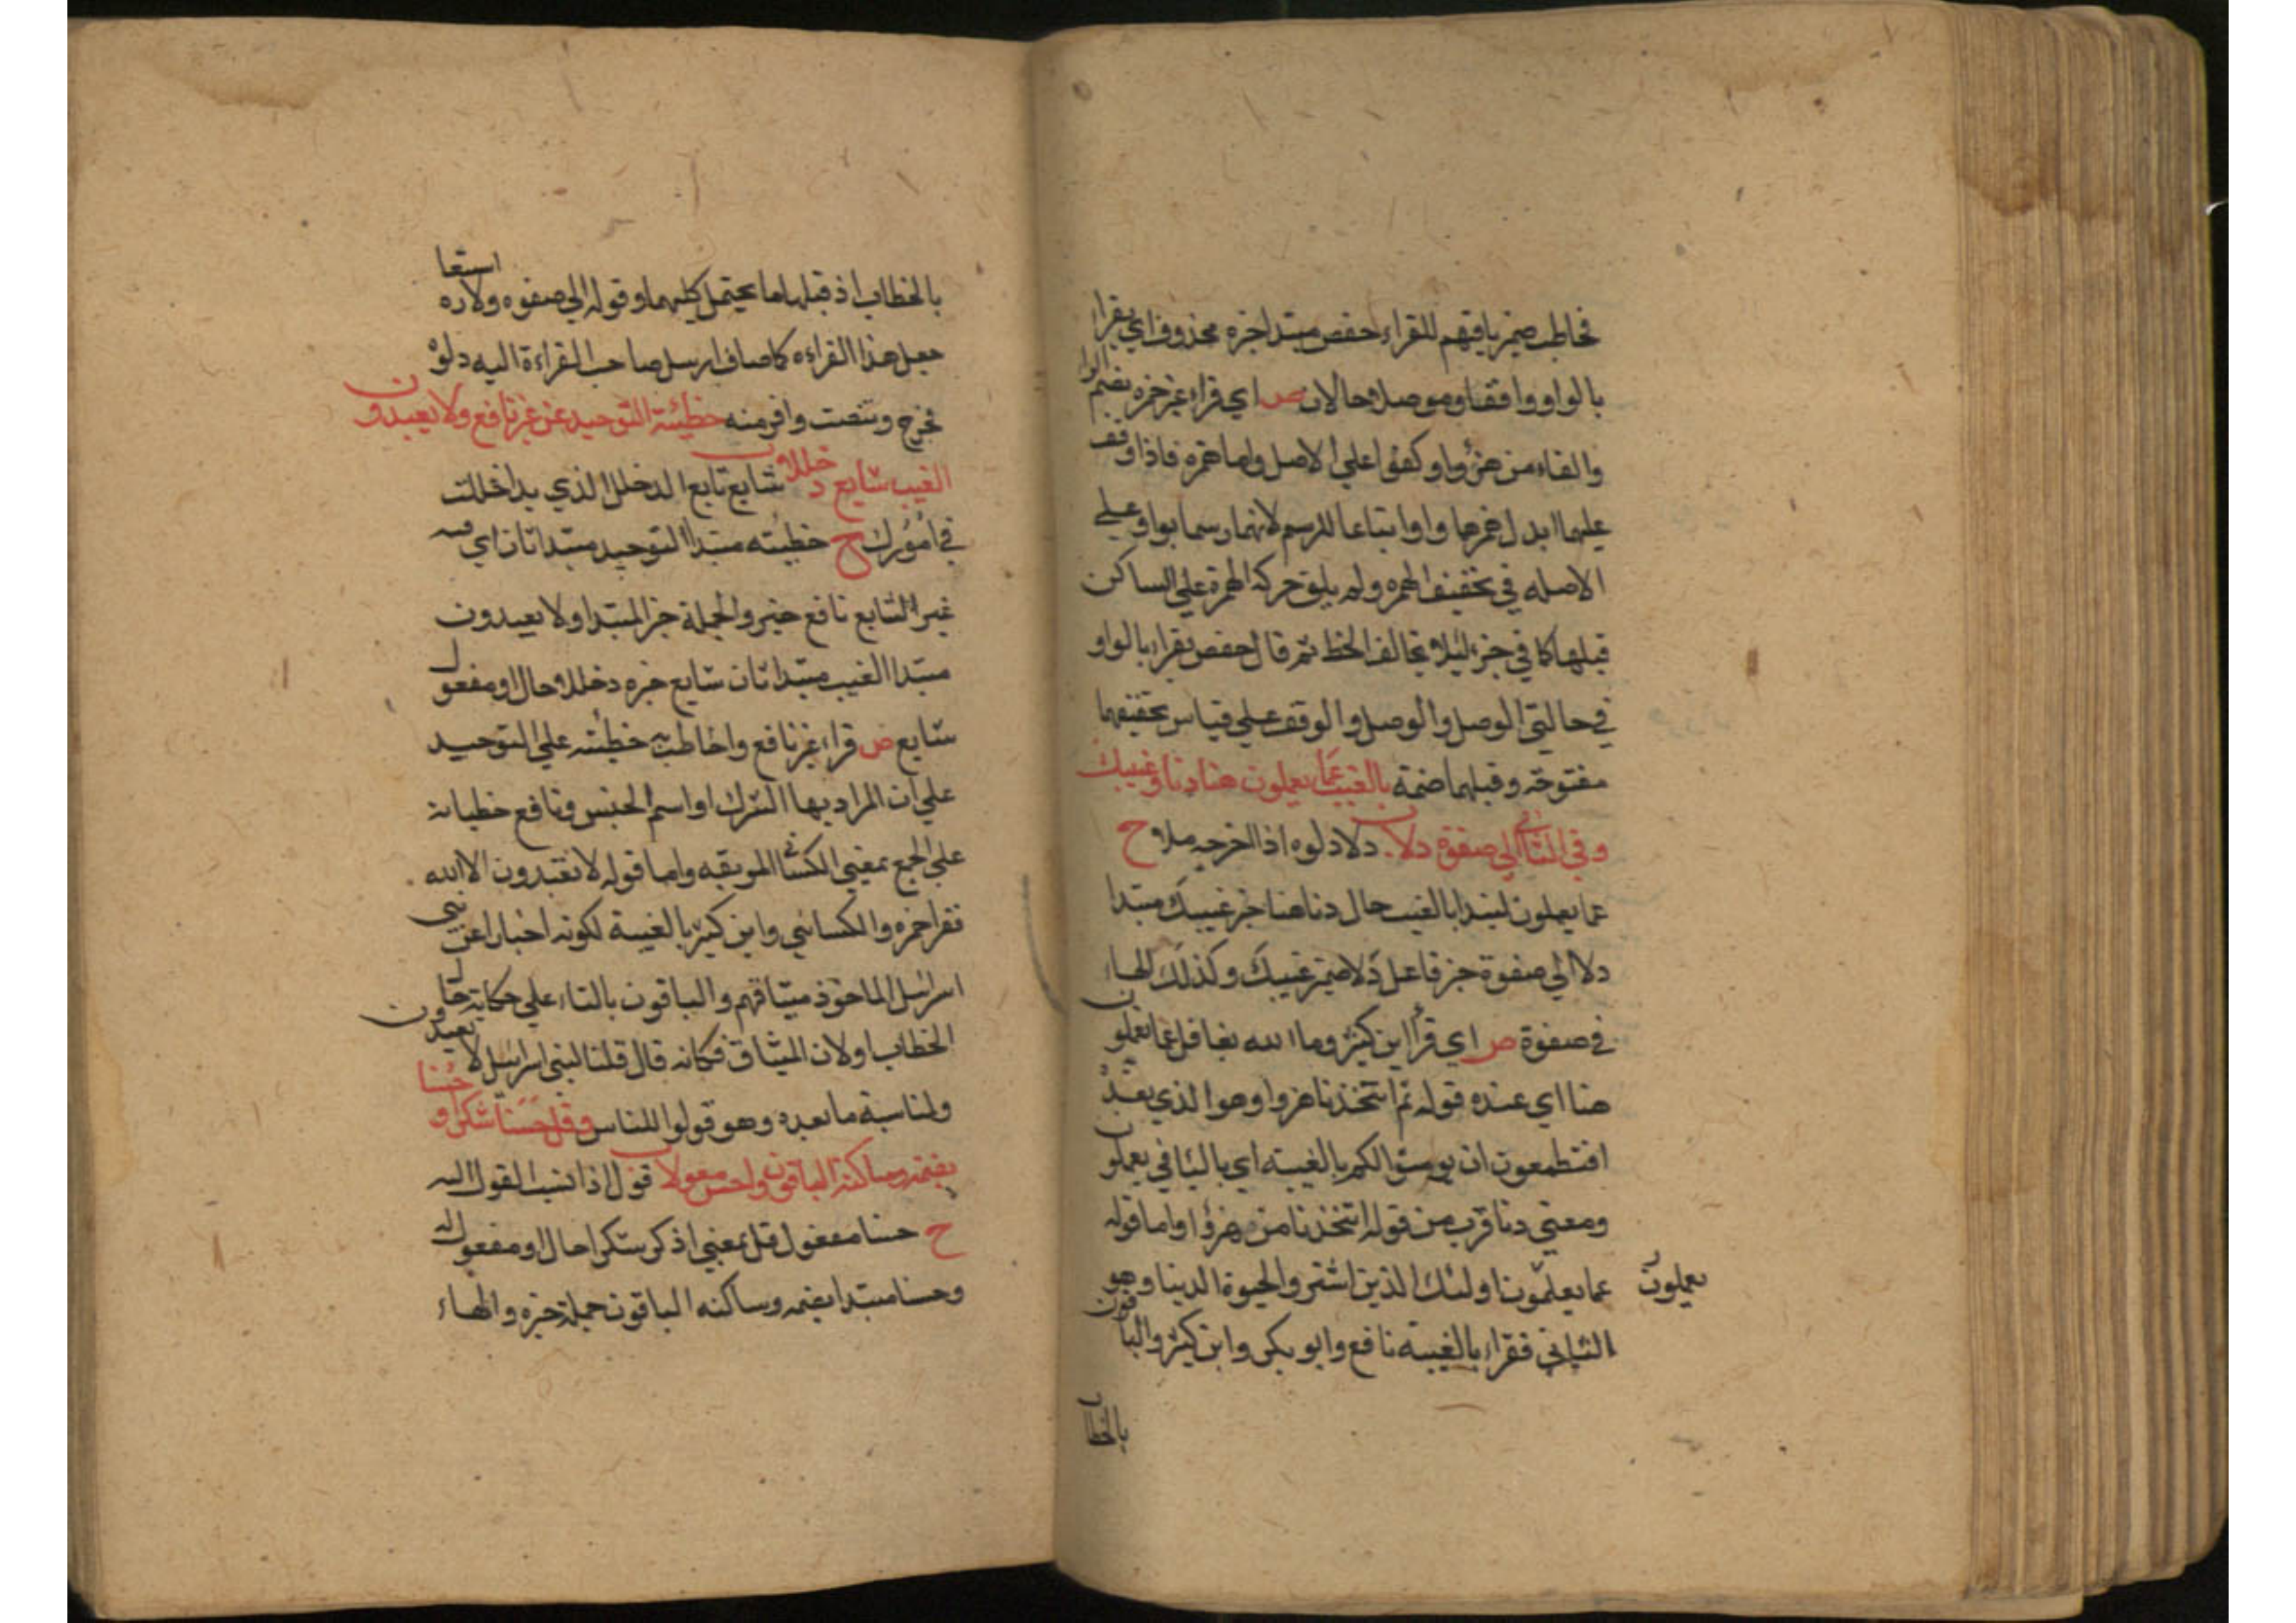 فخاطب ضمير باقيهم للقراء حفص مبتدا خبره محذوف اي يقرا
بالواو واقفا وموصلا حالان ص اي قراء غير حمزه بضم الوا
والفاء من هزؤا وكفؤا علي الاصل واما حمزه فاذا وقف
عليهما ابدل همزها واوا اتباعا للرسم لانهما رسما بواو علي
الاصله في تخفيف الهمزه ولم يلق حركة الهمزة علي الساكن
قبلها كما في جزء ليلا يخالف الخط ثم قال حفص يقراء بالواو
في حالتي الوصل والوصل والوقف علي قياس تخفيفها
مفتوحة وقبلها ضمة بالغيب عما يعملون هنا دنا وغيبك
وفي الثاني الي صفوة دلا دلا دلوه اذا اخرجه ملاء ح
عما يعملون ابتدا بالغيب حال دنا هنا خبر غيبك مبتدا
دلا الي صفوة خبر فاعل دلا ضمير غيبك وكذلك الهاء
في صفوة ص اي قرا ابن كثير وما الله بغافل عما يعملون
هنا اي عنده قوله تم اتتخذنا هزوا وهو الذي بعد
افتطمعون ان يومنوا لكم بالغيبه اي باليا في يعملون
ومعني دنا قرب من قوله اتتخذنا من هزؤا واما قوله
عما يعلمون اولئك الذين اشتروا الحيوة الدينا وهو
يعملون
الثاني فقراء بالغيبه نافع وابو بكر وابن كثير والباقون
بالخطاب
بالخطاب اذ قبلها ما يحتمل كليهما وقوله الي صفوه ولاره استعا
جعل هذا القراءه كاصاف ارسل صاحب القراءة اليه دلوه
فخرج وتنصت وافر منه خطيئة التوحيد عن غير نافع ولا يعبدون
الغيب شايع دخللا شايع تابع الدخلل الذي يداخلك
في امورك ح خطيئته مبتدا التوحيد مبتدا ثان اي فيه
غير الشايع نافع خبر والجملة خبر المبتدا ولا يعبدون
مبتدا الغيب مبتدا ثان شايع خبره دخللا حال او مفعول
شايع ص قراء غير نافع واحاطت به خطيئته علي التوحيد
علي ان المراد بها الشرك او اسم الجنس ونافع خطياته
علي الجمع بمعني الكبائر الموبقه واما قوله لا تعبدون الا الله
فقرا حمزه والكسائي وابن كثير بالغيبة لكونه اخبارا عن بني
اسرائيل الماخوذ ميثاقهم والباقون بالتاء علي حكاية حال
الخطاب او لان الميثاق فكانه قال قلنا لبني اسرائيل لا يعبدون
ولمناسبة ما بعده وهو قولوا للناس وقل حسنا شكرا و حسنا
بضمه وساكنه الباقون واحسن مقولا قول اذا نسب القول اليه
ح حسنا مفعول قل بمعني اذكر شكرا حال او مفعول له
وحسنا مبتدا بضمه وساكنه الباقون جملة خبره والهاء